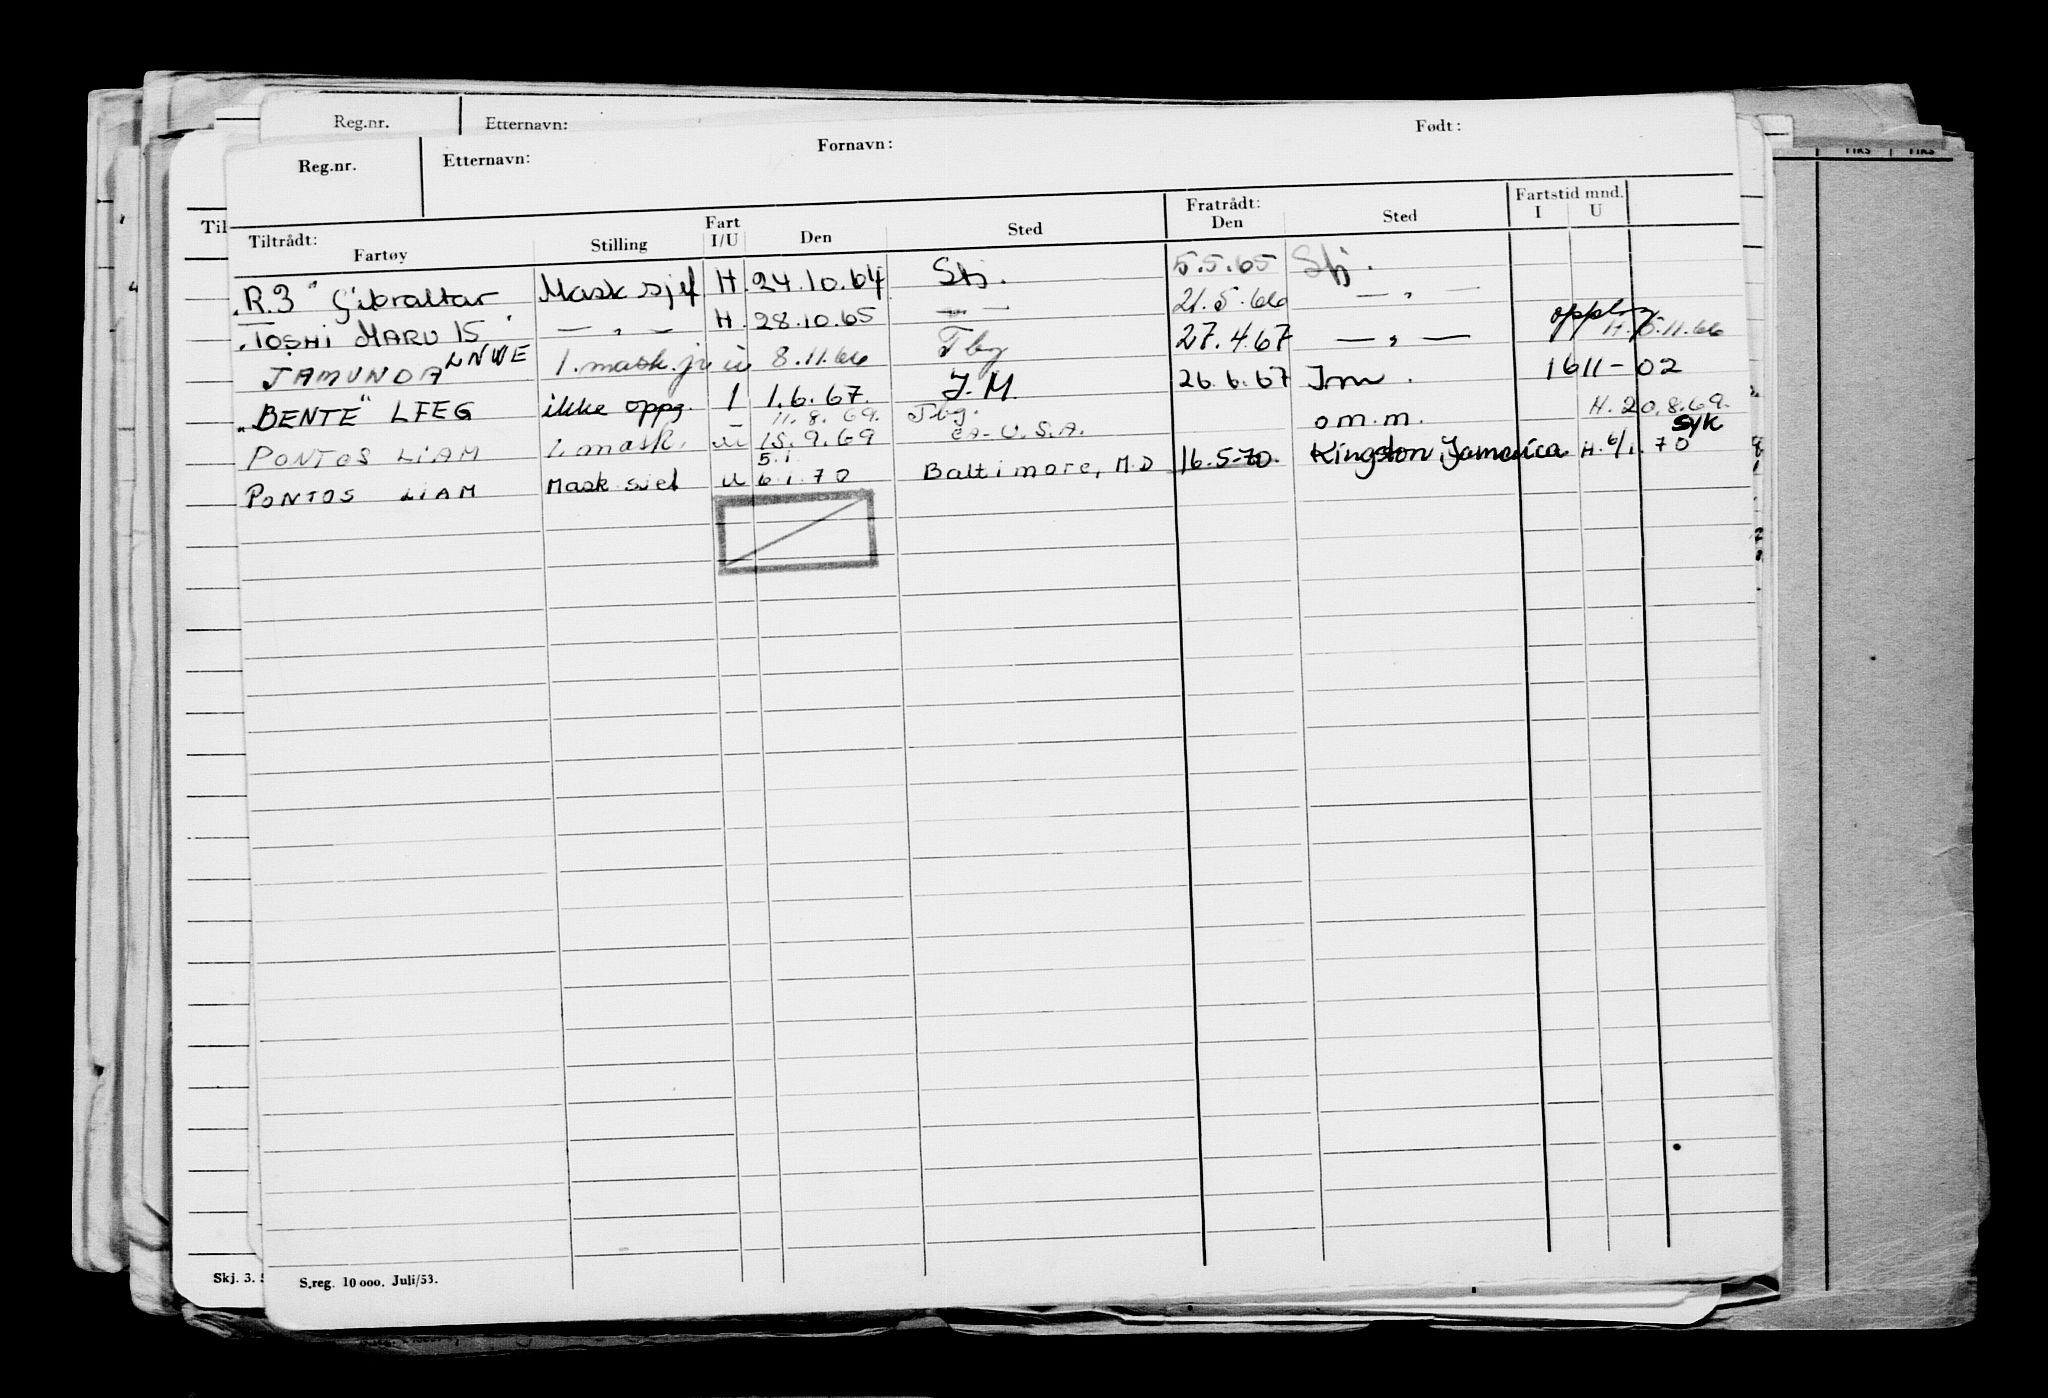 Reg.nr. Etternavn:
Reg.nr. Etternavn: Fornavn: Født:
Til
Tiltrådt: Fartøy Stilling Fart I/U Den Sted Fratrådt: Den Sted Fartstid mnd. I U
"R.3" Gibraltar Mask sjef H. 24.10.64 Stj. 5.5.65 Stj.
"Toshi Maru 15" — " — H. 28.10.65 — " — 21.5.66 — " —
JAMUNDA LNWE 1. mask. jr. u 8.11.66 Tbg 27.4.67 — " — opplag H. 5.11.66
"BENTE" LEEG ikke oppg. I 1.6.67. J.M. 26.6.67 Jm. 1611-02
PONTOS LIAM 1. mask. u 11.8.69. 15.9.69 Tbg. CA-U.S.A. o m.m. H. 20.8.69.
PONTOS LIAM Mask sjef u 5.1. 6.1.70 Baltimore, M.D 16.5-70. Kingston, Jamaica H. 6/1.70 syk
Skj. 3.
S.reg. 10 000. Juli/53.